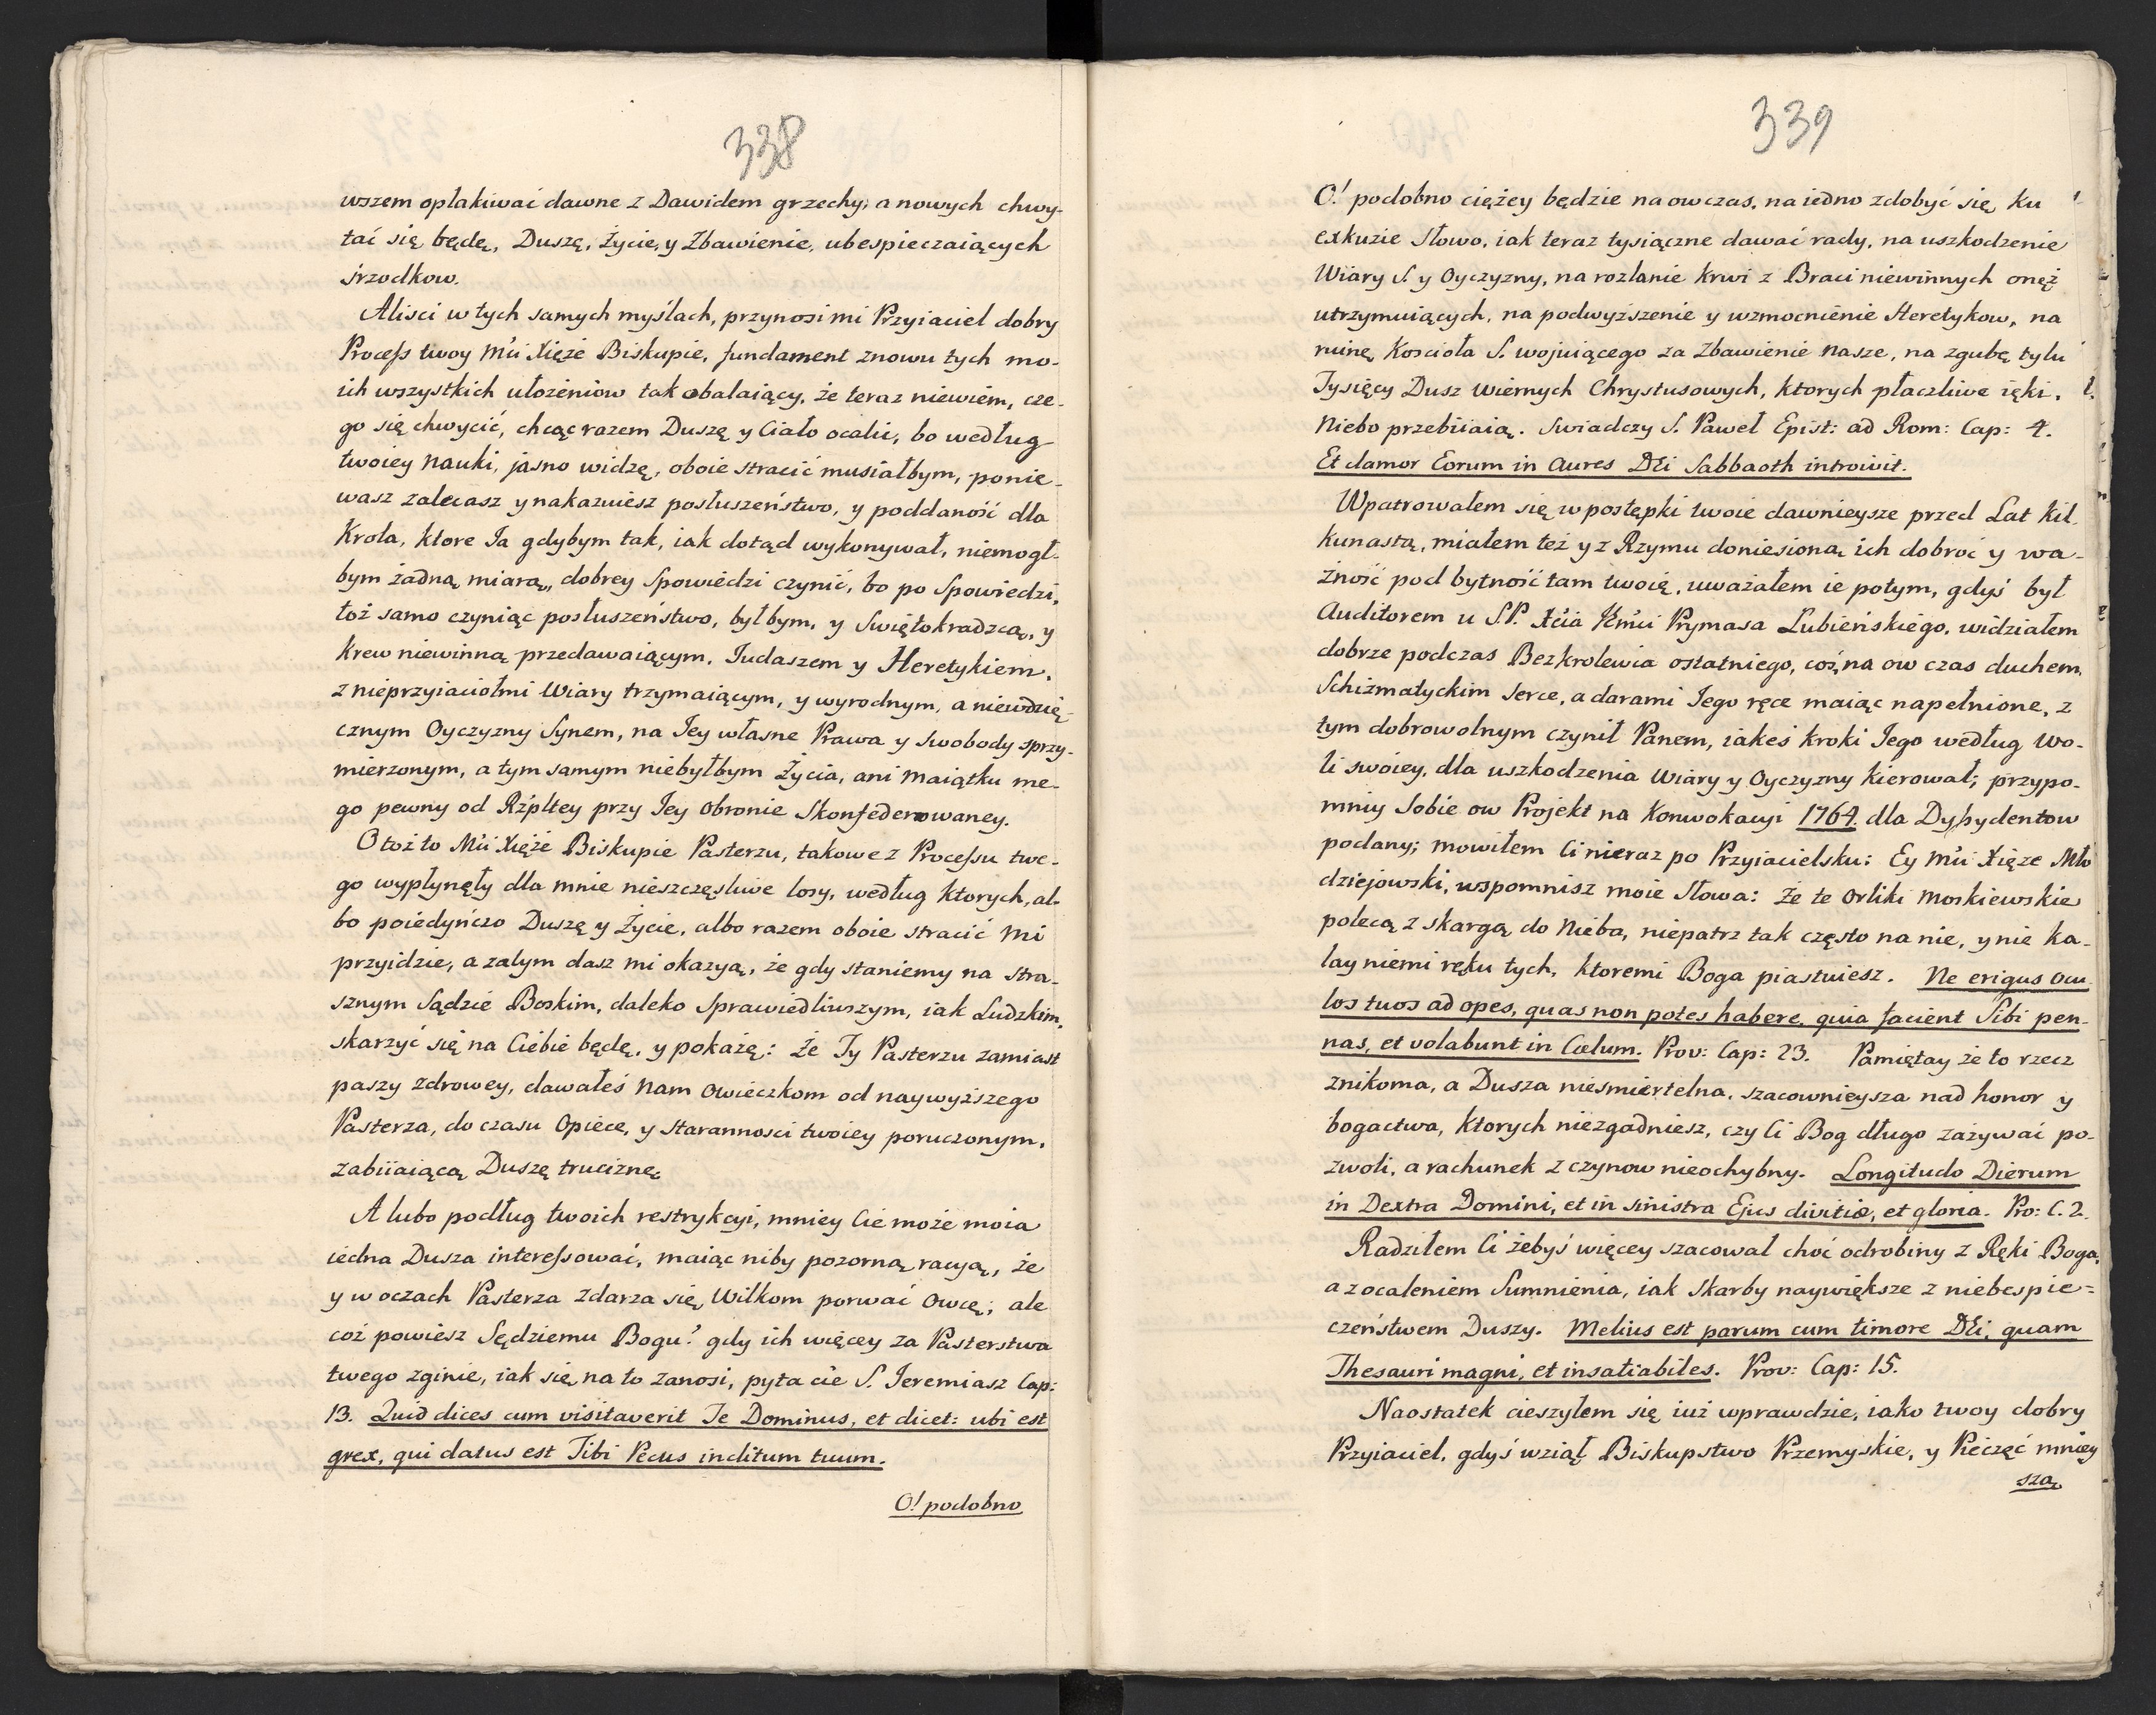 338
wszem opłakiwać dawne z Dawidem grzechy, a nowych chwy-
tać się będę, Duszę, Życie, y Zbawienie, ubespieczaiących
srzodkow.
Alisci w tych samych myślach, przynosi mi Przyiaciel dobry
Process twoy Mći Xięże Biskupie, fundament znowu tych mo-
ich wszystkich ułożeniow tak obalaiący, że teraz niewiem, cze-
go się chwycić, chcąc razem Duszę y Ciało ocalić, bo według
twoiey Nauki, jasno widzę, oboie stracić musiałbym, ponie-
wasz zalecasz y nakazuiesz posłuszeństwo, y poddaność dla
Krola, ktore Ja gdybym tak, iak dotąd wykonywał, niemogł-
bym żadną miarą, dobrey Spowiedzi czynić, bo po Spowiedzi,
toż samo czyniąc posłuszeństwo, byłbym, y Swiętokradzcą, y
Krew niewinną przedawaiącym, Judaszem y Heretykiem,
z nieprzyiaciołmi Wiary trzymaiącym, y wyrodnym, a niewdzię-
cznym Oyczyzny Synem, na Jey własne Prawa y Swobody sprzy-
mierzonym, a tym samym niebyłbym Życia, ani Maiątku me-
go pewny od Rzpltey przy Jey Obronie Skonfederowaney.
Otoż to Mći Xięże Biskupie Pasterzu, takowe z Processu twe-
go wypłynęły dla mnie nieszczęsliwe losy, według ktorych, al-
bo poiedyńczo Duszę y Życie, albo razem oboie stracić Mi
przyidzie, a zatym dasz mi okazyą, że gdy staniemy na Stra-
sznym Sądzie Boskim, daleko Sprawiedliwszym, iak Ludzkim,
skarzyć się na Ciebie będę, y pokażę: Że Ty Pasterzu zamiast
paszy zdrowey, dawałeś Nam Owieczkom od naywyższego
Pasterza, do czasu Opiece, y Starannosci twoiey poruczonym,
zabiiaiącą Duszę truciznę.
A lubo podług twoich restrykcyi, mniey Cie może moia
iedna Dusza interessować, maiąc niby pozorną racyą, że
y w oczach Pasterza zdarza się Wilkom porwać Owcę; ale
coż powiesz Sędziemu Bogu? gdy ich więcey za Pasterstwa
twego zginie, iak się na to zanosi, pyta cie S. Jeremiasz Cap:
13. Quid dices cum visitaverit Te Dominus, et dicet: ubi est
grex, qui datus est Tibi Pecus inclitum tuum.
O! podobno
339
O! podobno ciężey będzie naowczas, na iedno zdobyć się ku
exkuzie Słowo, iak teraz tysiączne dawać rady, na uszkodzenie
Wiary S. y Oyczyzny, na rozlanie krwi z Braci niewinnych onęż
utrzymuiących, na podwyższenie y wzmocnienie Heretykow, na
ruinę Koscioła S. wojuiącego za Zbawienie Nasze, na zgubę tylu
Tysięcy Dusz Wiernych Chrystusowych, ktorych płaczliwe ięki,
Niebo przebiiaią. Swiadczy S. Paweł Epist: ad Rom: Cap: 4.
Et clamor Eorum in Aures DEi Sabbaoth introivit.
Wpatrowałem się w postępki twoie dawnieysze przed Lat kil-
kunastą, miałem też y z Rzymu doniesioną ich dobroć y wa-
żność pod bytność tam twoię, uważałem ie potym, gdyś był
Auditorem u S.P. Xcia Jmći Prymasa Lubieńskiego, widziałem
dobrze podczas Bezkrolewia ostatniego, coś na ow czas duchem
Schizmatyckim serce, a darami Jego ręce maiąc napełnione, z
tym dobrowolnym czynił Panem, iakeś kroki Jego według Wo-
li swoiey, dla uszkodzenia Wiary y Oyczyzny kierował; przypo-
mniy Sobie ow Projekt na Konwokacyi 1764. dla Dyssydentow
podany; mowiłem Ci nieraz po Przyiacielsku: Ey Mći Xięze Mło
dziejowski, wspomnisz moie Słowa: Że te Orliki Moskiewskie
polecą z skargą do Nieba, niepatrz tak często na nie, y nie ka-
lay niemi ręku tych, ktoremi Boga piastuiesz. Ne erigas Ocu-
los tuos ad opes, quas non potes habere, quia facient Sibi pen-
nas, et volabunt in Cœlum. Prov: Cap: 23. Pamiętay że to rzecz
znikoma, a Dusza niesmiertelna, szacownieysza nad honor y
bogactwa, ktorych niezgadniesz, czy Ci Bog długo zażywać po-
zwoli, a rachunek z czynow nieochybny. Longitudo Dierum
in Dextra Domini, et in sinistra Ejus divitiæ, et gloria. Pro: C. 2.
Radziłem Ci żebyś więcey szacował choć odrobiny z Ręki Boga,
a z ocaleniem Sumnienia, iak Skarby naywiększe z niebespie=
czeństwem Duszy. Melius est parum cum timore DEi, quam
Thesauri magni, et insatiabiles. Prov: Cap: 15.
Naostatek cieszyłem się iuż wprawdzie, iako twoy dobry
Przyiaciel, gdyś wziął Biskupstwo Przemyskie, y Pieczęć mniey
szą